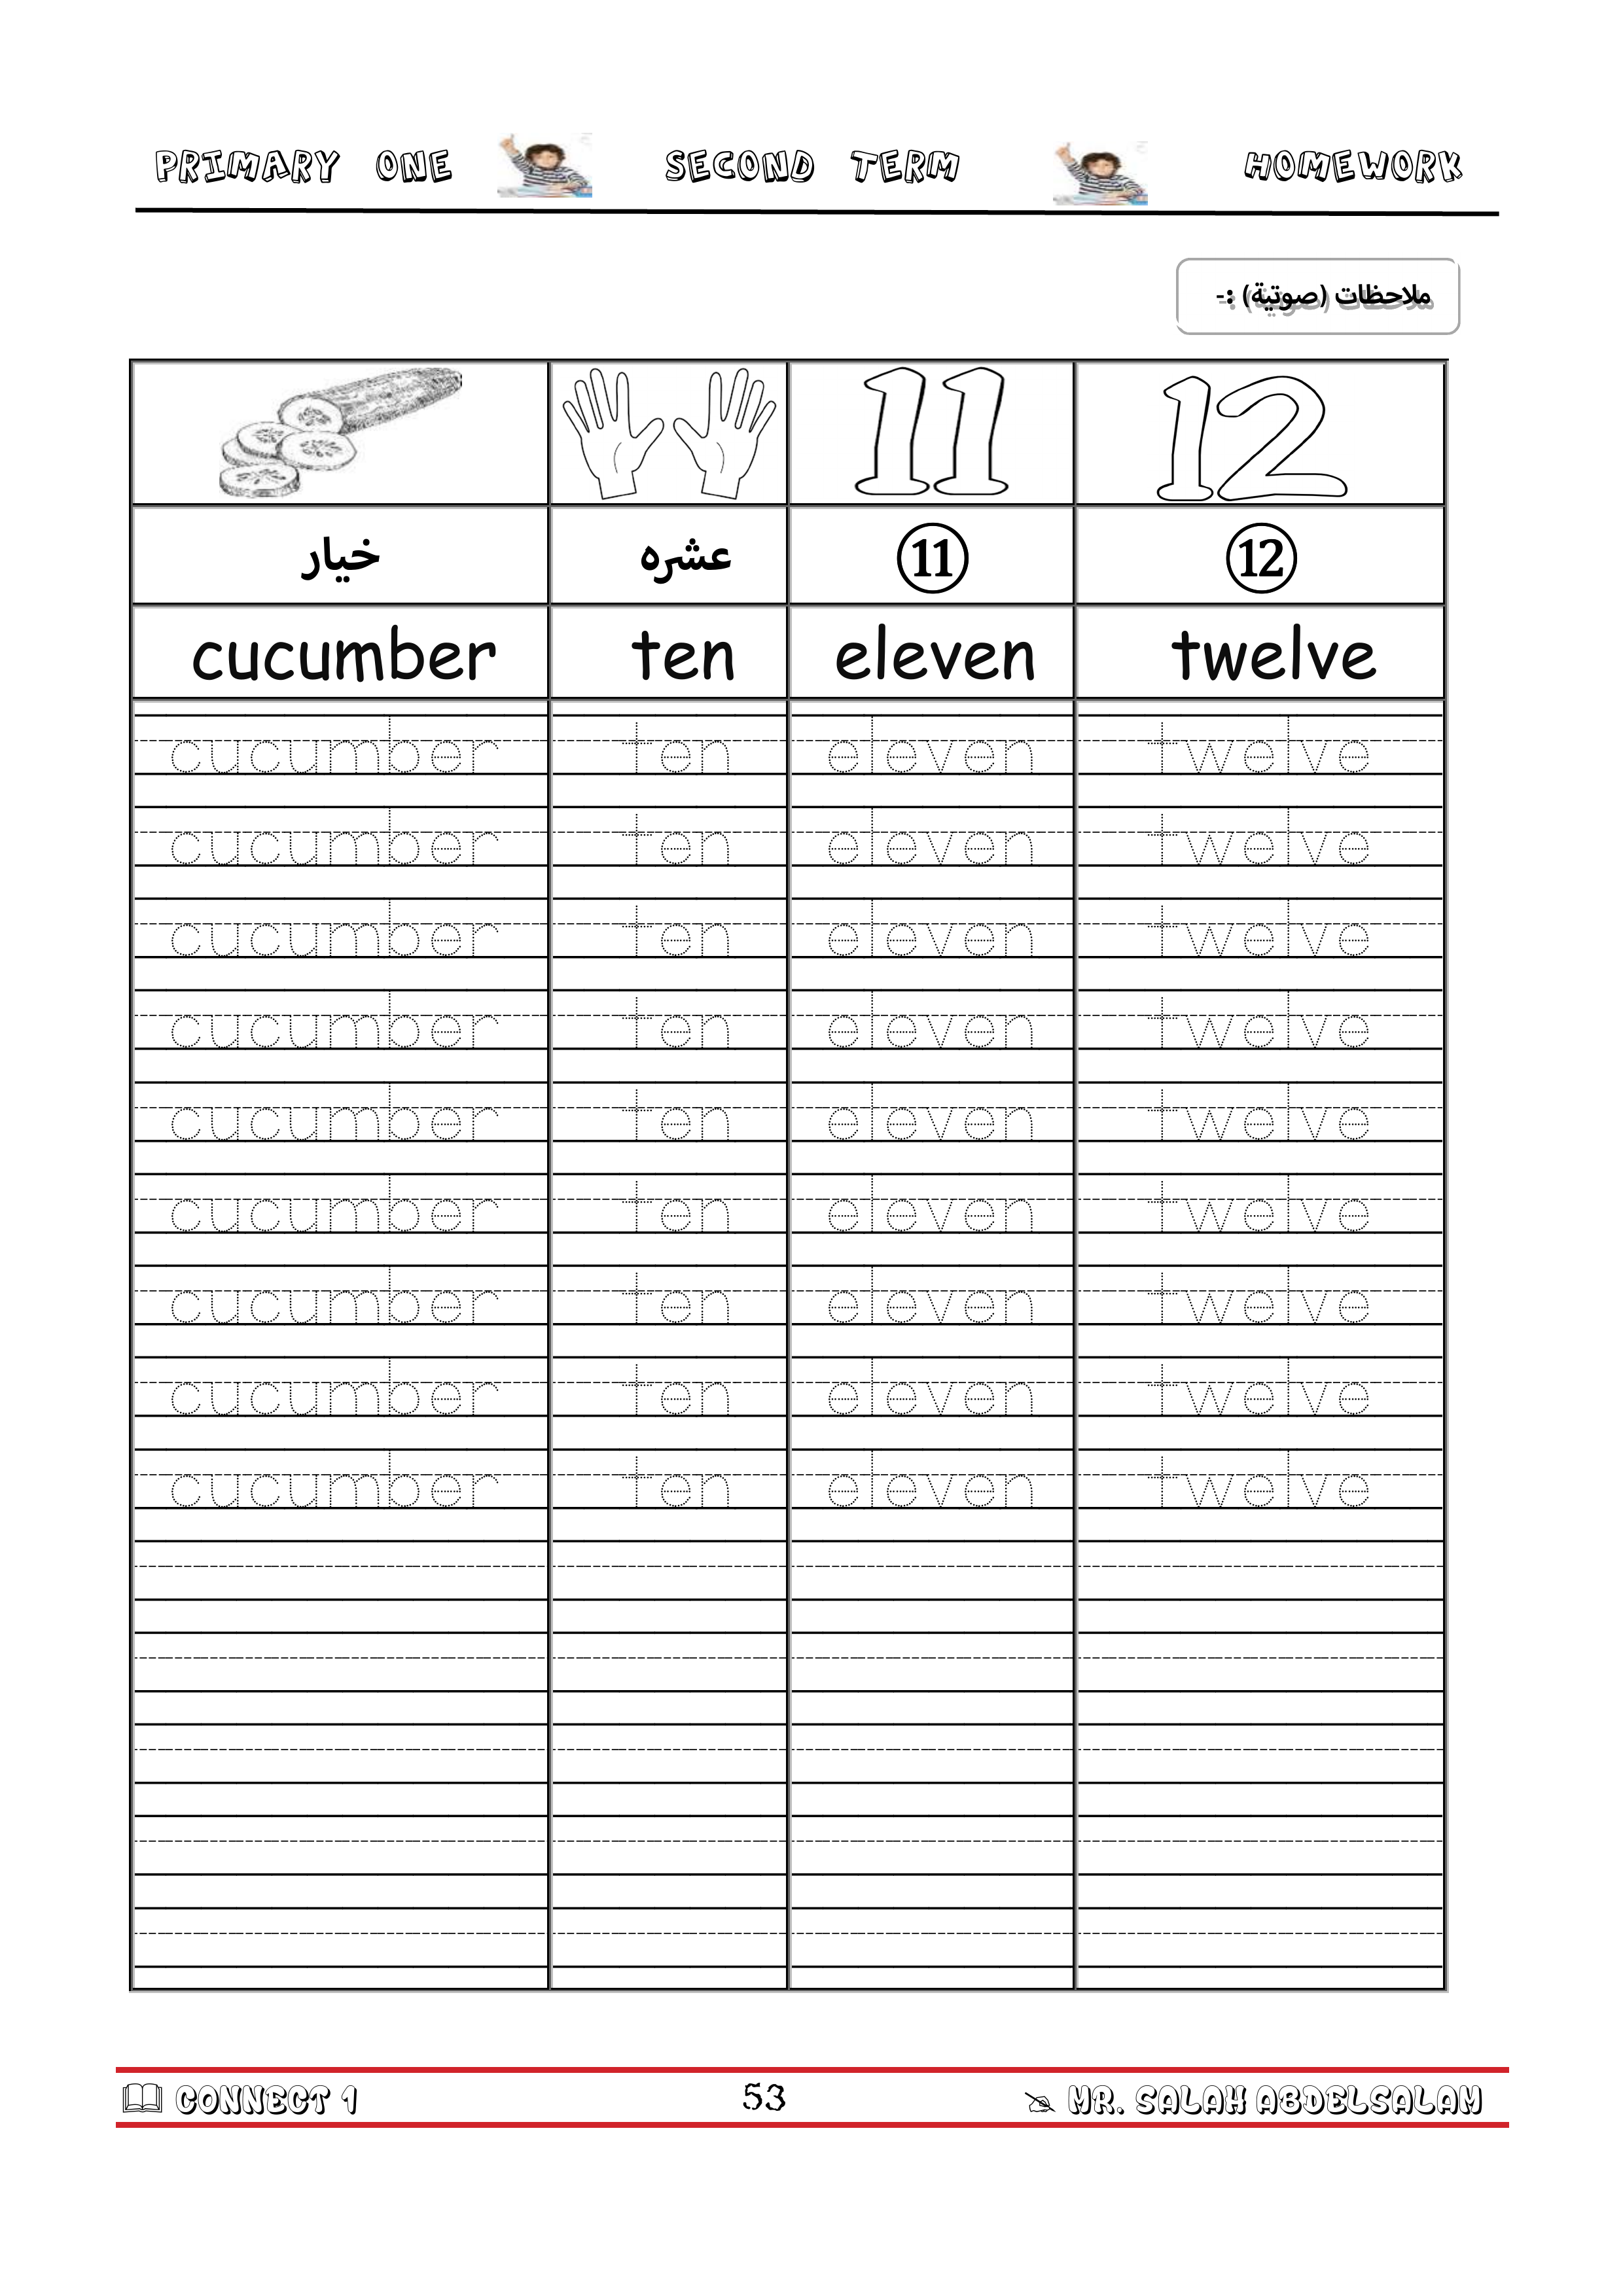 PRIMARY ONE SECOND TERM HOMEWORK
ملاحظات (صوتية) :-
11 12
خيار عشره 11 12
cucumber ten eleven twelve
cucumber ten eleven twelve
cucumber ten eleven twelve
cucumber ten eleven twelve
cucumber ten eleven twelve
cucumber ten eleven twelve
cucumber ten eleven twelve
cucumber ten eleven twelve
cucumber ten eleven twelve
cucumber ten eleven twelve
CONNECT 1 53 MR. SALAH ABDELSALAM